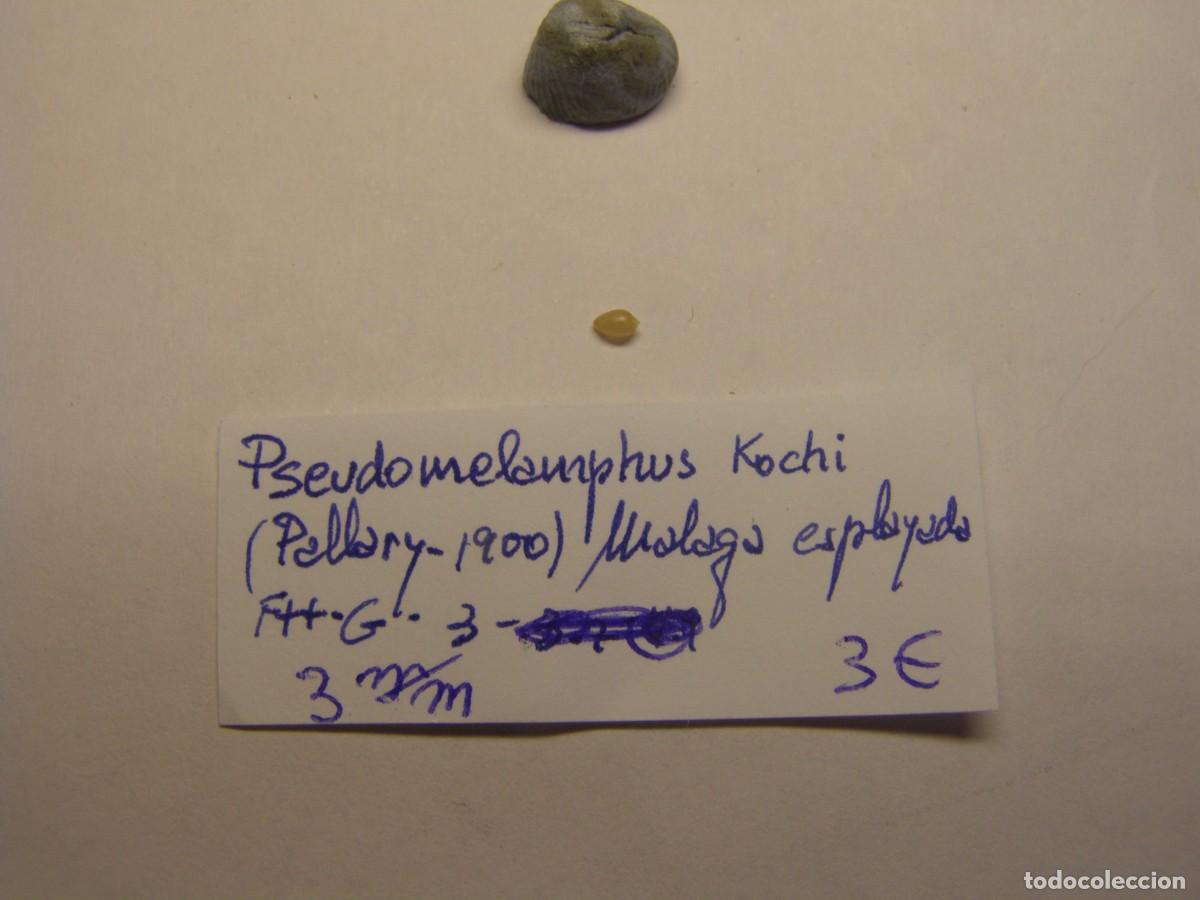 Pseudomelamphus Kochi
(Pallary-1900) Malaga esplayada
FH-G- 3-
3 m/m
3€
todocoleccion